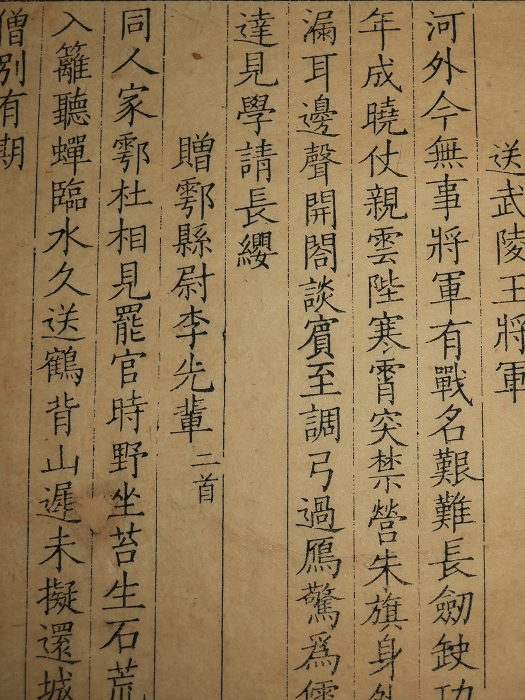 送武陵王將軍
河外今無事將軍有戰名艱難長劒缺功
年成曉仗親雲陛寒霄突禁營朱旗身外
漏耳邊聲開閤談賓至調弓過鴈驚爲儒
達見學請長纓
贈鄠縣尉李先輩二首
同人家鄠杜相見罷官時野坐苔生石荒
入籬聽蟬臨水久送鶴背山遲未擬還城
僧別有期